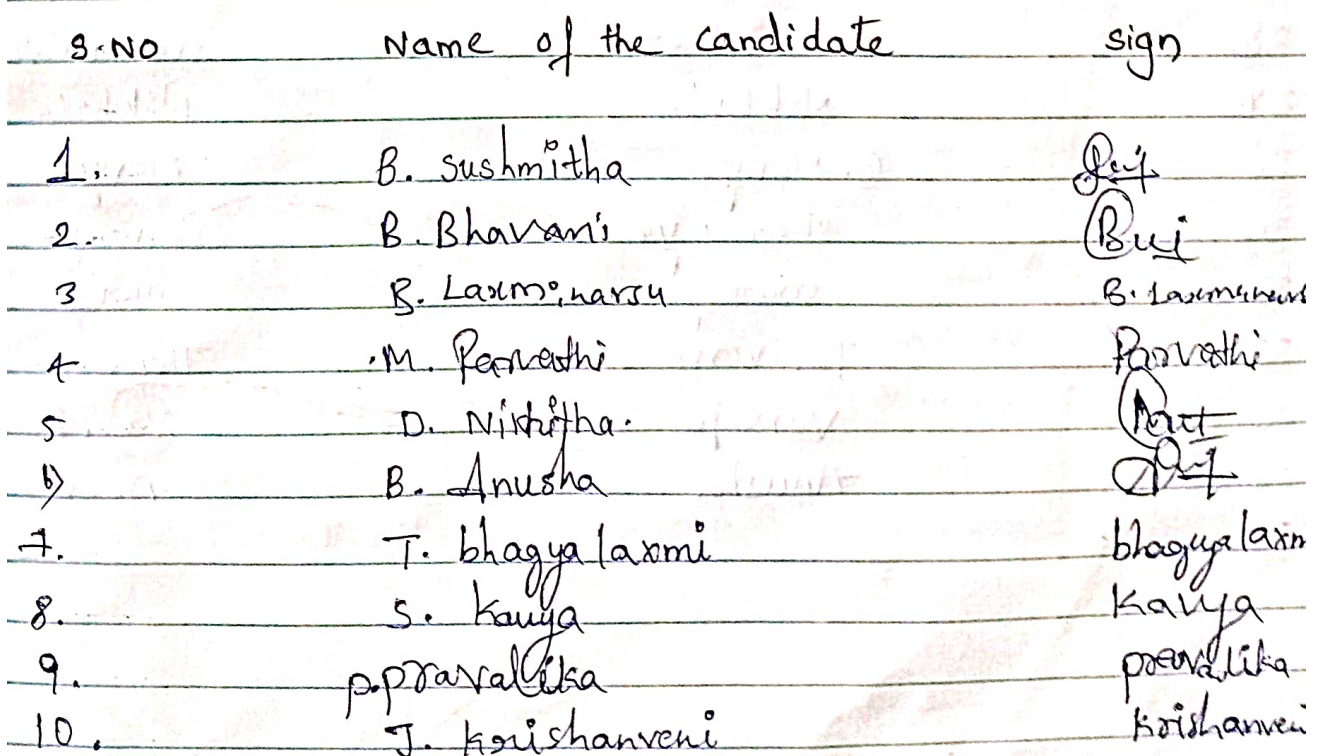 S.NO Name of the candidate sign
1. B. sushmitha
2. B. Bhavani Buj
3 B. Laxminarsu B. Laxminars
4 M. Parvathi Parvathi
5 D. Nikhitha.
6) B. Anusha
7. T. bhagya laxmi bhagya laxm
8. S. Kavya Kavya
9. p.pravalika pravalika
10. J. krishanveni krishanveni